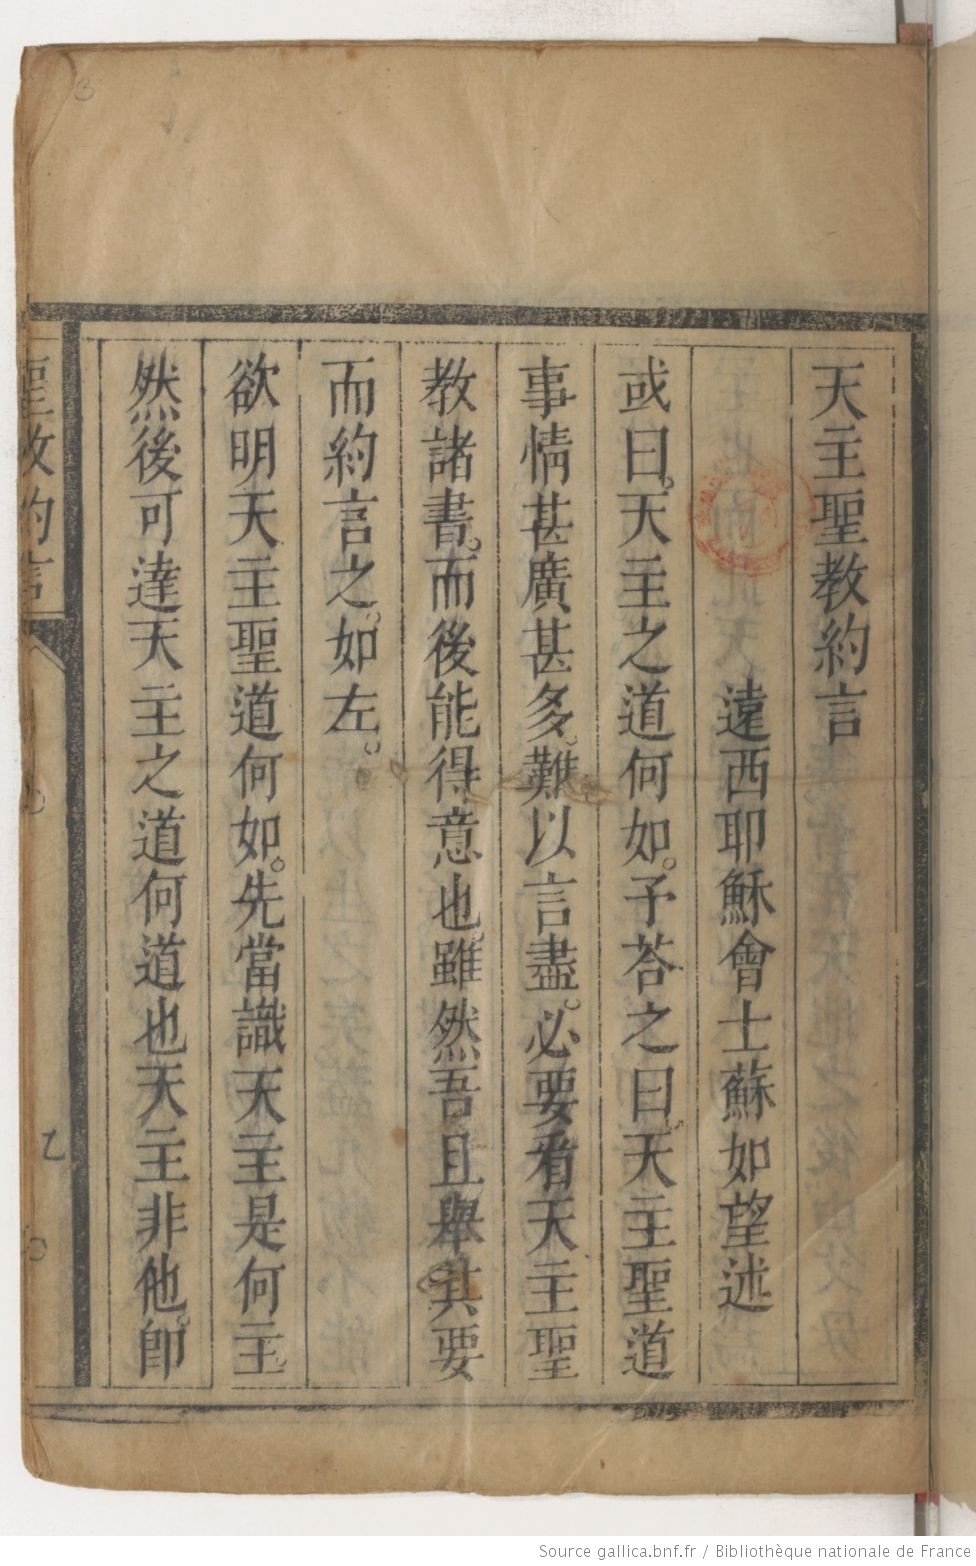 天主聖教約言
遠西耶穌會士蘇如望述
或曰。天主之道何如。予荅之曰。天主聖道
事情甚廣甚多。難以言盡。必要看天主聖
教諸書。而後能得意也。雖然吾且舉其要
而約言之。如左。
欲明天主聖道何如。先當識天主是何主。
然後可達天主之道何道也天主非他。卽
聖教約言
乙
3
Source gallica.bnf.fr / Bibliothèque nationale de France